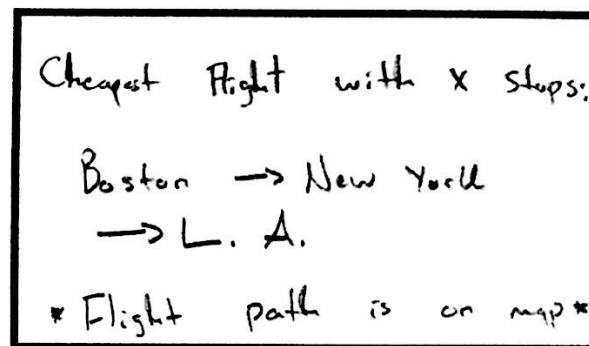 Cheapest Flight with x stops:
Boston → New York
→ L. A.
* Flight path is on map *